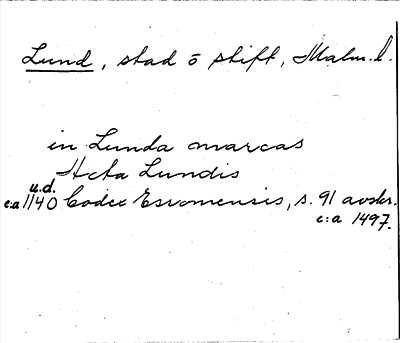 Lund, stad ō stift, Malm. l.
in Lunda marcas
Acta Lundis
u.d.
c:a 1140 Codex Esromensis, s. 91 avskr.
c:a 1497.